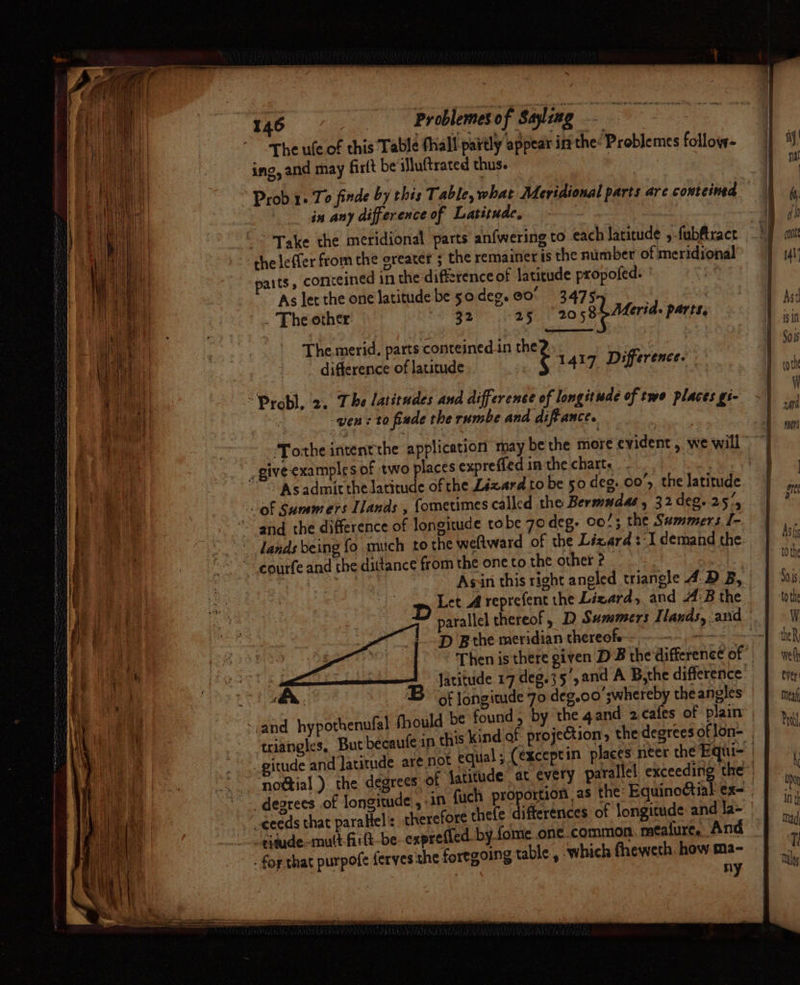 146 Problemes of Sayling
The uſe of this Table ſhall partly appear in the Problemes follow-
ing, and may firſt be illuſtrated thus.
Prob 1. To finde by this Table, what Meridional parts are conteined
in any difference of Latitude.
Take the meridional parts anſwering to each latitude, ſubſtract
the leſſer from the greater; the remainer is the number of meridional
parts, conteined in the difference of latitude propoſed.
As let the one latitude be 50 deg. 00′ 3475
The other 32 25 2058 Merid. parts.
The merid. parts conteined in the
difference of latitude 1417 Difference.
Probl. 2. The latitudes and difference of longitude of two places gi-
ven: to finde the rumbe and diſtance.
To the intent the application may be the more evident, we will
give examples of two places expreſſed in the chart.
As admit the latitude of the Lizard to be 50 deg. 00′, the latitude
of Summers Ilands, ſometimes called the Bermudas, 32 deg. 25′,
and the difference of longitude to be 70 deg. 00′; the Summers I-
lands being ſo much to the weſtward of the Lizard: I demand the
courſe and the diſtance from the one to the other?
As in this right angled triangle A D B,
Let A repreſent the Lizard, and A B the
D parallel thereof, D Summers Ilands, and
D B the meridian thereof.
Then is there given D B the difference of
latitude 17 deg. 35′, and A B, the difference
A B of longitude 70 deg. 00′; whereby the angles
and hypothenuſal ſhould be found, by the 4 and 2 caſes of plain
triangles. But becauſe in this kind of projection, the degrees of lon-
gitude and latitude are not equal; (except in places neer the Equi-
noctial) the degrees of latitude at every parallel exceeding the
degrees of longitude, in ſuch proportion as the Equinoctial ex-
ceeds that parallel: therefore theſe differences of longitude and la-
titude muſt firſt be expreſſed by ſome one common meaſure. And
for that purpoſe ſerves the foregoing table, which ſheweth how ma-
ny